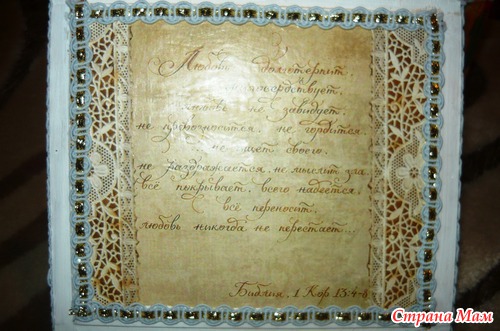 Любовь долготерпит,
милосердствует,
любовь не завидует,
не превозносится, не гордится.
не ищет своего,
не раздражается, не мыслит зла.
всё покрывает, всего надеется,
всё переносит,
любовь никогда не перестает...
Библия, 1 Кор 13:4-8
Страна Мам